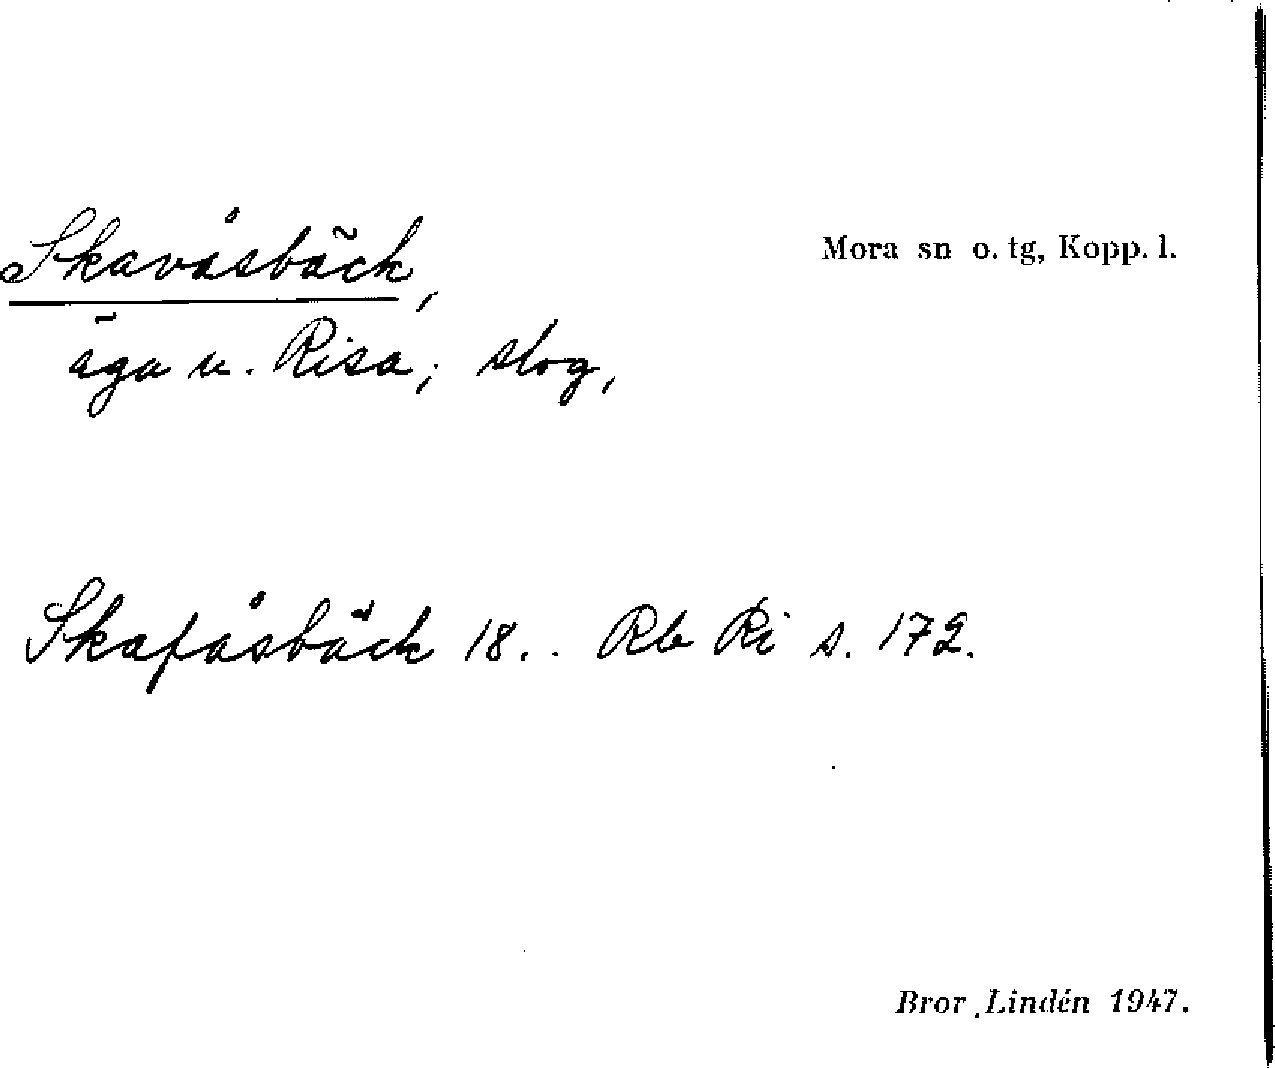 Skavåsbäck,
Mora sn o. tg, Kopp. l.
äga u. Risa; slog,
Skafåsbäck 18.. Rb Ri s. 172.
Bror Lindén 1947.